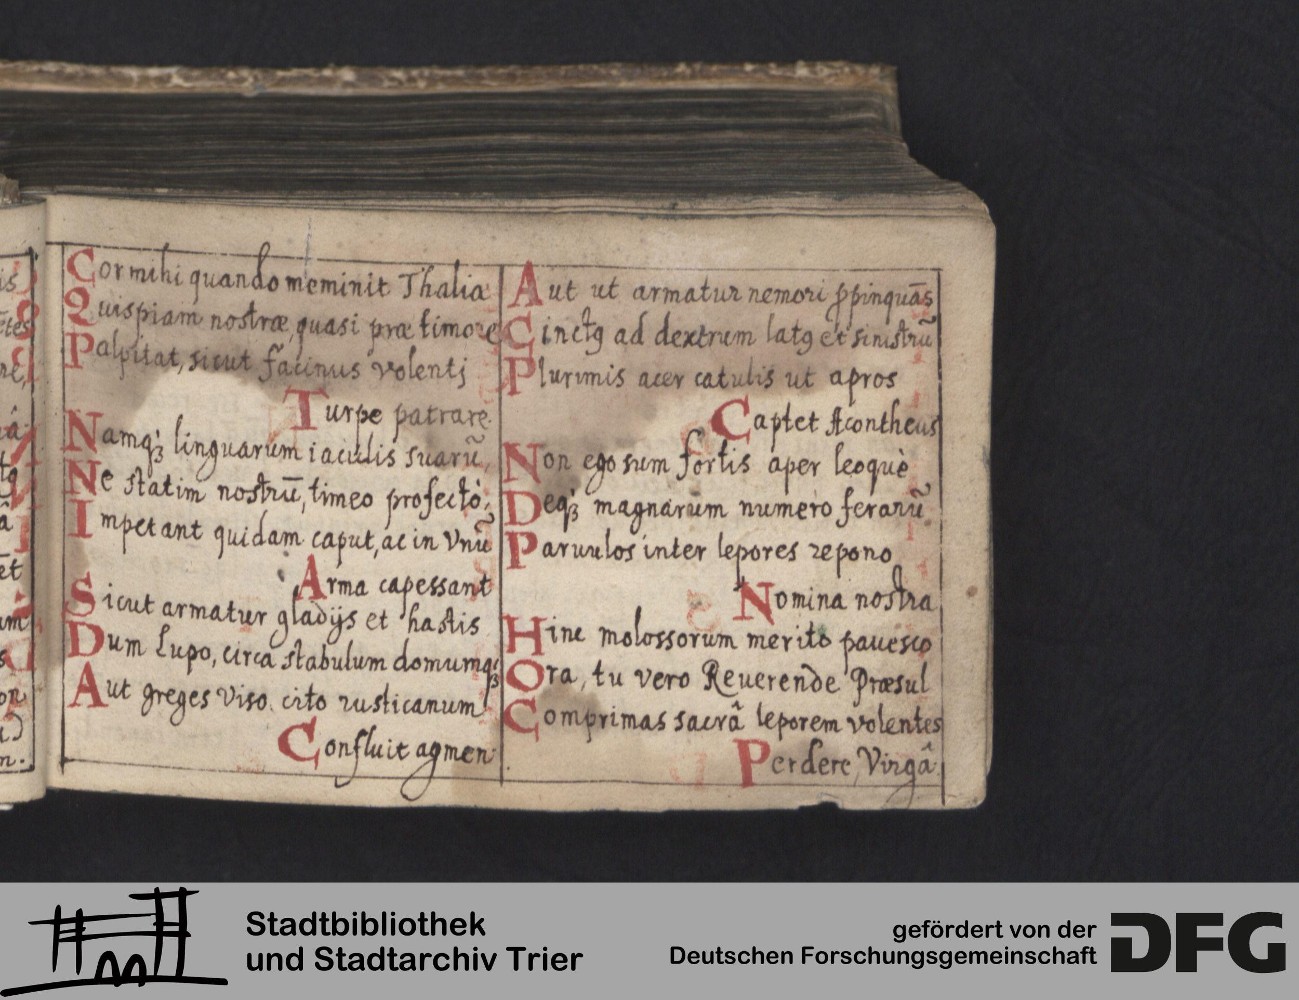 Cor mihi quando meminit Thaliæ
Quispiam nostræ, quasi præ timore
Palpitat, sicut facinus volenti
Turpe patrare.
Namqȝ linguarum iaculis suarũ,
Ne statim nostrũ, timeo profectò,
Impetant quidam caput, ac in vnũ
Arma capessant
Sicut armatur gladijs et hastis
Dum Lupo, circa stabulum domumqȝ
Aut greges viso cito rusticanum
Confluit agmen.
Aut ut armatur nemori ꝓpinquãs
Cinctꝯ ad dextrum latꝯ et sinistrũ
Plurimis acer catulis ut apros
Captet Acontheus
Non ego sum fortis aper leoquè
Deqȝ magnarum numero ferarũ
Paruulos inter lepores repono
Nomina nostra
Hinc molossorum merito pauesco
Ora, tu vero Reuerende Præsul
Comprimas sacrâ leporem volentes
Perdere, Virgâ.
Stadtbibliothek
und Stadtarchiv Trier
gefördert von der
Deutschen Forschungsgemeinschaft
DFG